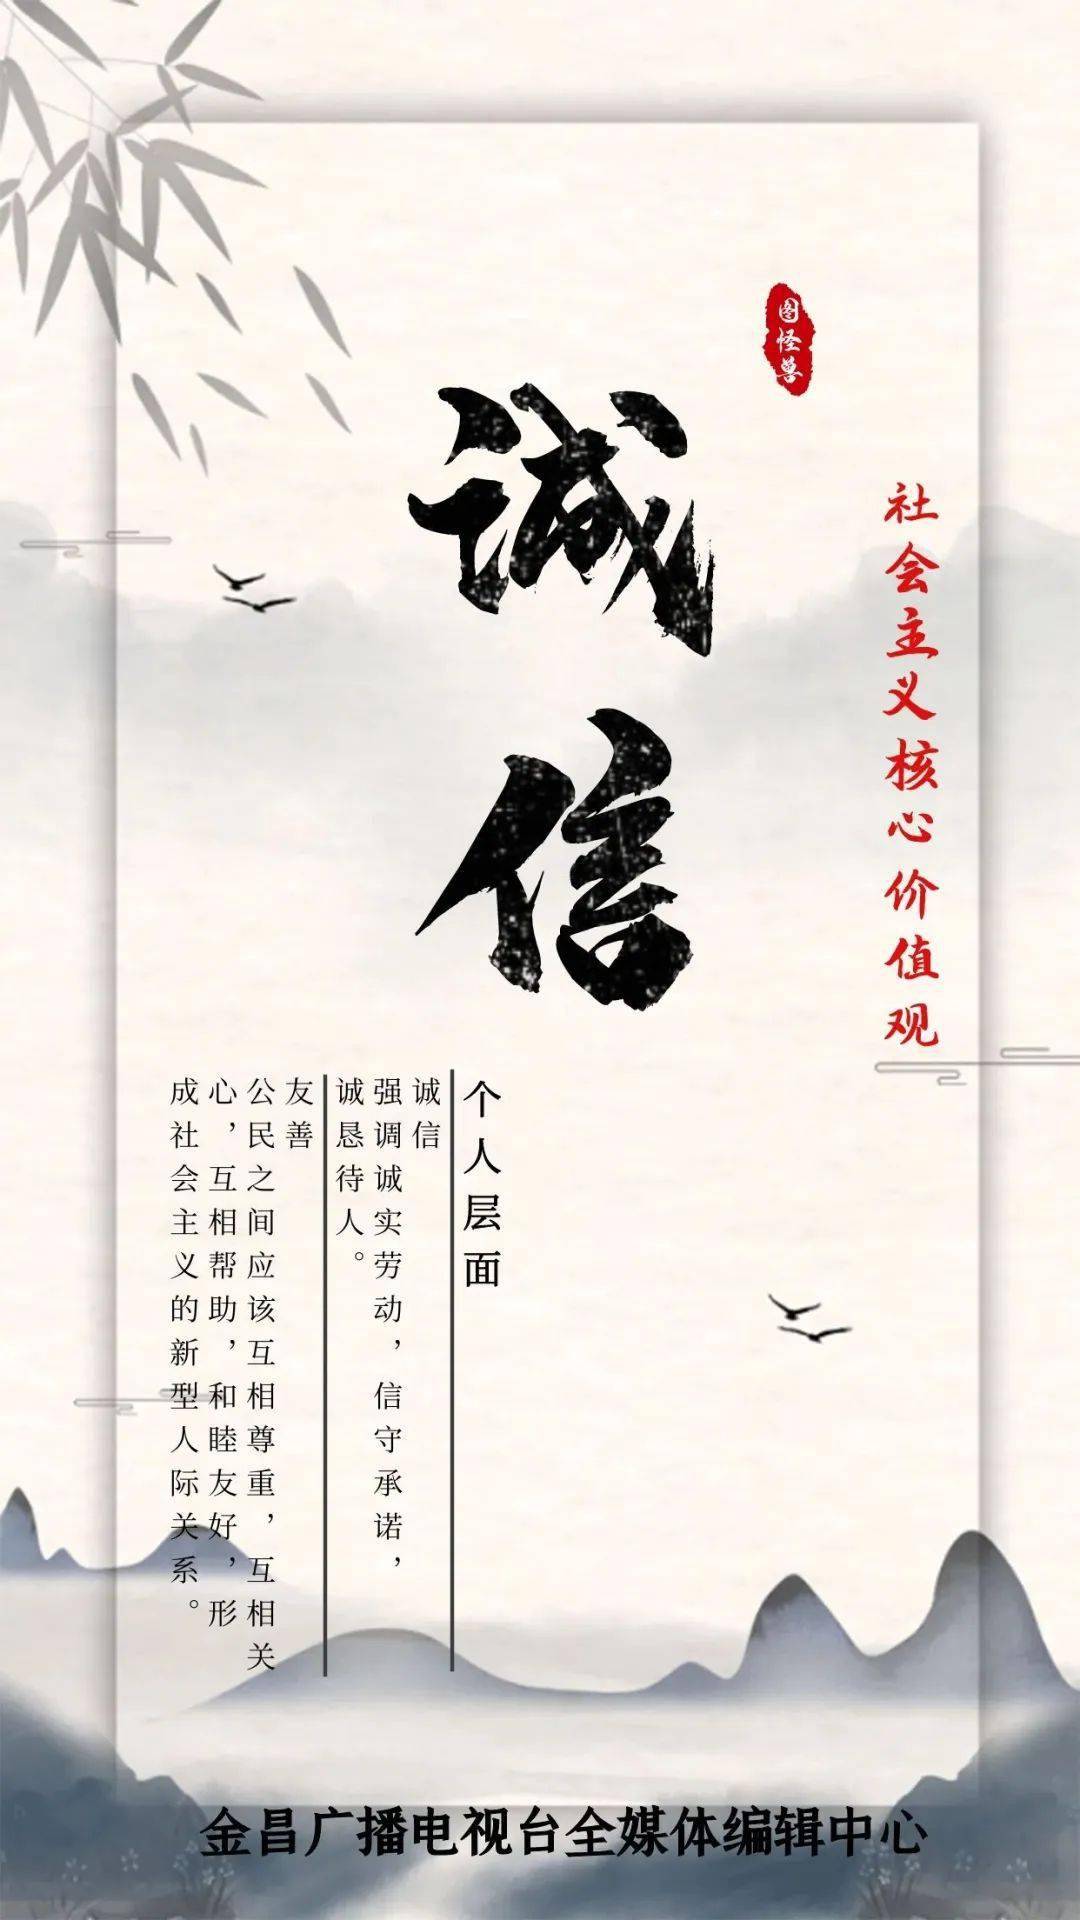 图怪兽
社会主义核心价值观
诚信
个人层面
诚信
强调诚实劳动，信守承诺，
诚恳待人。
友善
公民之间应该互相尊重，互相关
心，互相帮助，和睦友好，形
成社会主义的新型人际关系。
金昌广播电视台全媒体编辑中心